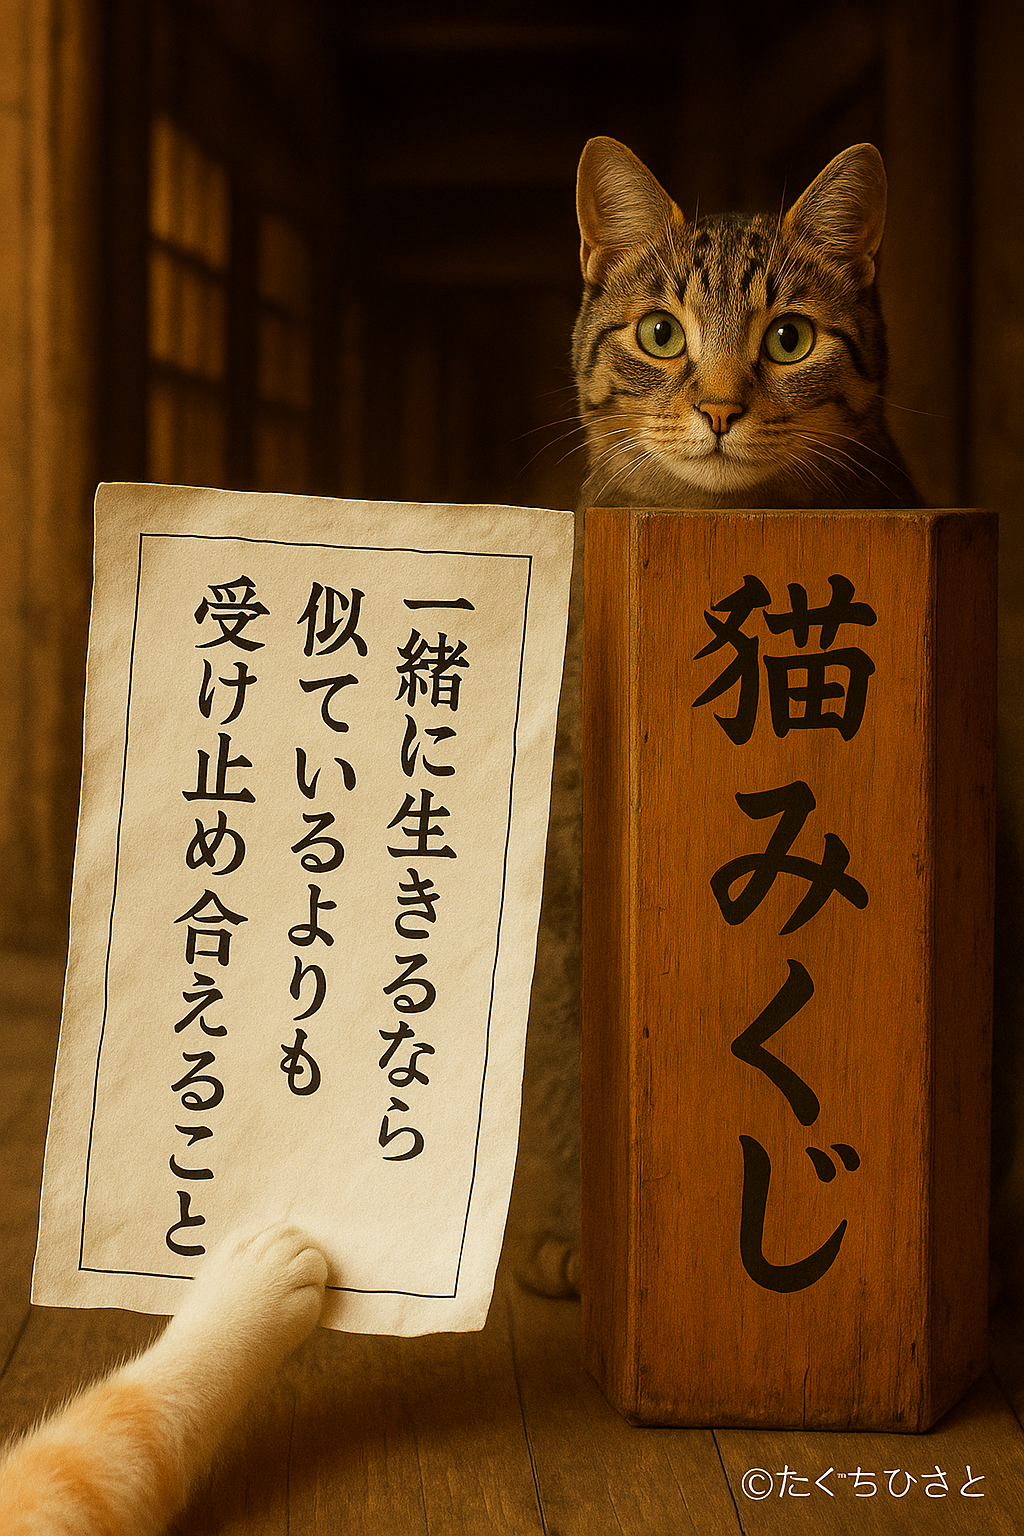 一緒に生きるなら
似ているよりも
受け止め合えること
猫みくじ
©たぐちひさと